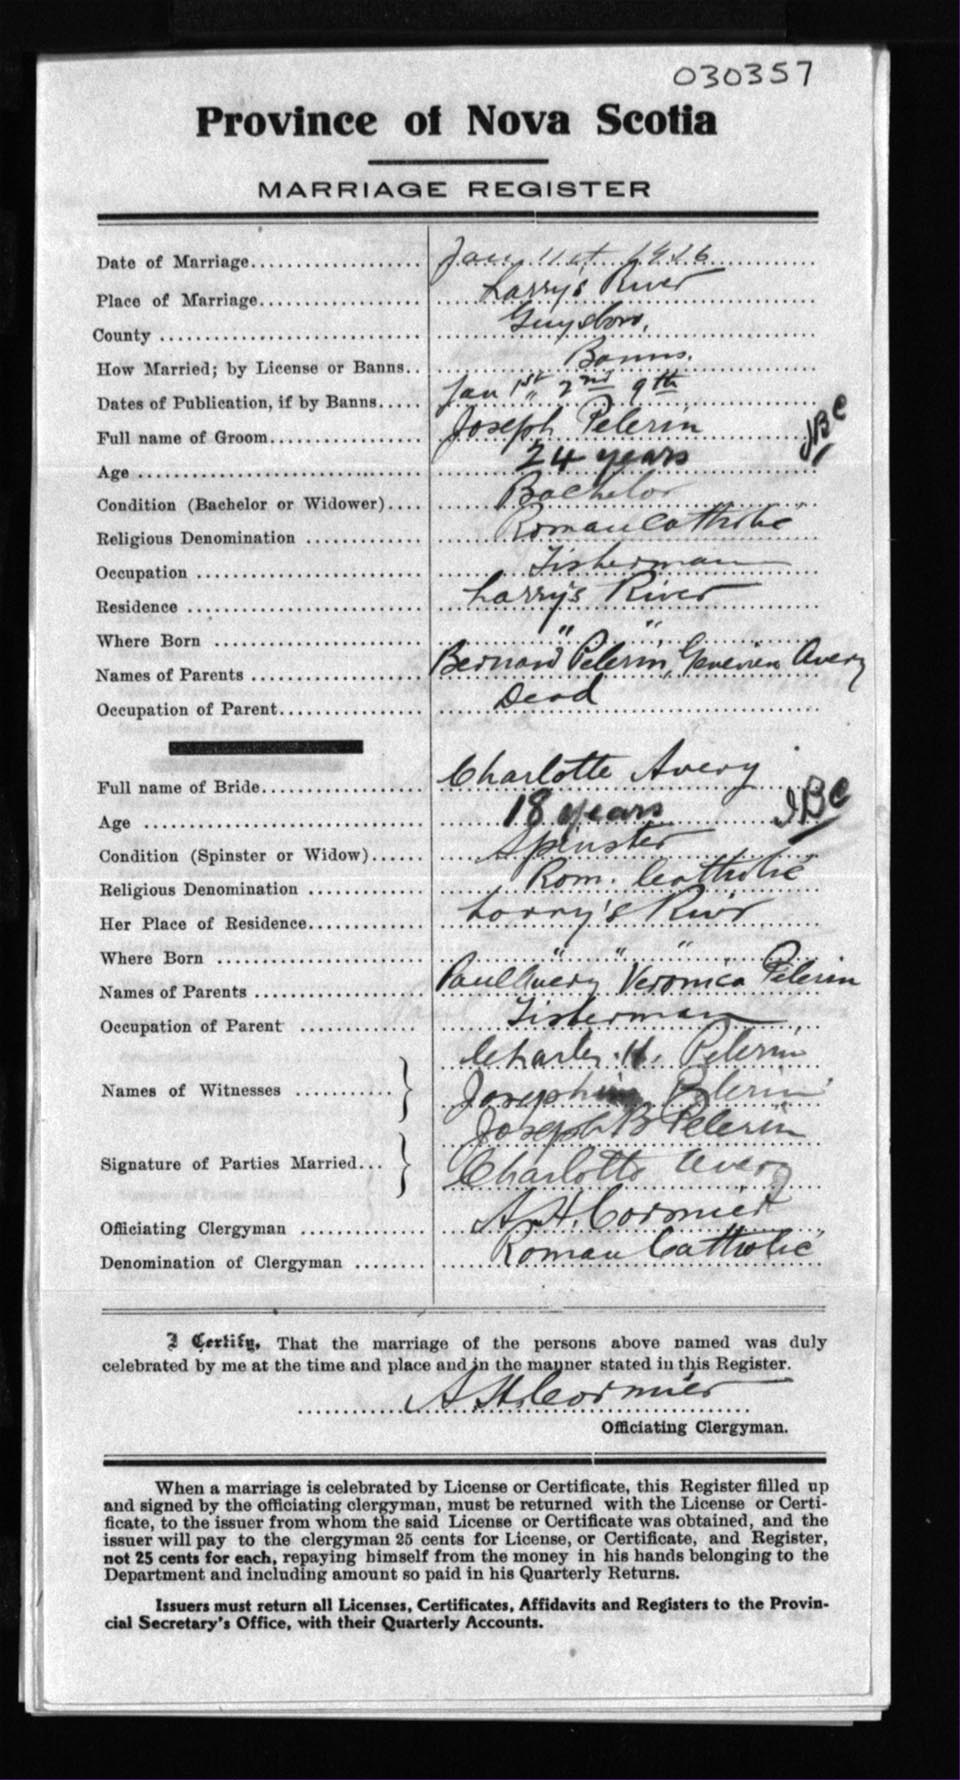 030357
Province of Nova Scotia
MARRIAGE REGISTER
Date of Marriage.................... Jan. 11th 1926
Place of Marriage................... Larry's River
County ............................ Guysboro.
How Married; by License or Banns.. Banns.
Dates of Publication, if by Banns..... Jan 1st, 2nd 9th
Full name of Groom.................. Joseph Pelerin JBC
Age ................................ 24 years
Condition (Bachelor or Widower).... Bachelor
Religious Denomination ............. Roman Catholic
Occupation ......................... Fisherman
Residence .......................... Larry's River
Where Born ........................ " "
Names of Parents .................. Bernard Pelerin, Avery
Occupation of Parent............... Dead
Full name of Bride.................. Charlotte Avery
Age ................................ 18 years JBC
Condition (Spinster or Widow)...... Spinster
Religious Denomination ............. Rom. Catholic
Her Place of Residence............. Larry's River
Where Born ........................ " " "
Names of Parents .................. Paul Avery Veronica Pelerin
Occupation of Parent .............. Fisherman
Charles H. Pelerin
Names of Witnesses ............ Josephine Pelerin
Joseph B Pelerin
Signature of Parties Married... Charlotte Avery
Officiating Clergyman ............. A. H. Cormier
Denomination of Clergyman ........ Roman Catholic
I Certify, That the marriage of the persons above named was duly
celebrated by me at the time and place and in the manner stated in this Register.
A. H. Cormier
Officiating Clergyman.
When a marriage is celebrated by License or Certificate, this Register filled up
and signed by the officiating clergyman, must be returned with the License or Certi-
ficate, to the issuer from whom the said License or Certificate was obtained, and the
issuer will pay to the clergyman 25 cents for License, or Certificate, and Register,
not 25 cents for each, repaying himself from the money in his hands belonging to the
Department and including amount so paid in his Quarterly Returns.
Issuers must return all Licenses, Certificates, Affidavits and Registers to the Provin-
cial Secretary's Office, with their Quarterly Accounts.